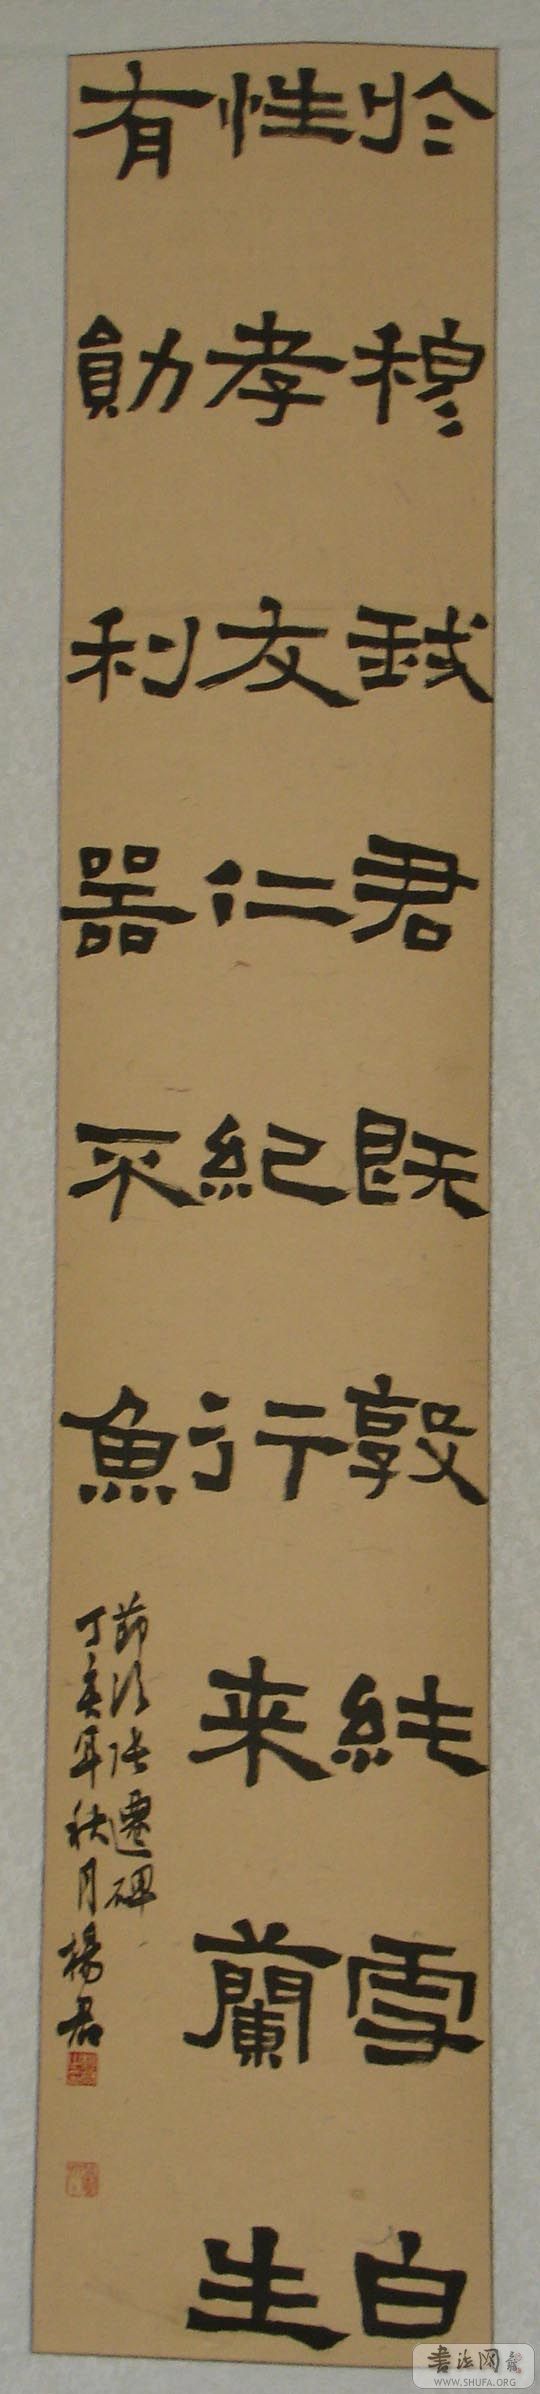 於穆我君既敦純雪白
性孝友仁紀行来蘭生
有勛利器不魚
節臨張遷碑
丁亥年秋月楊君
書法网
WWW.SHUFA.ORG